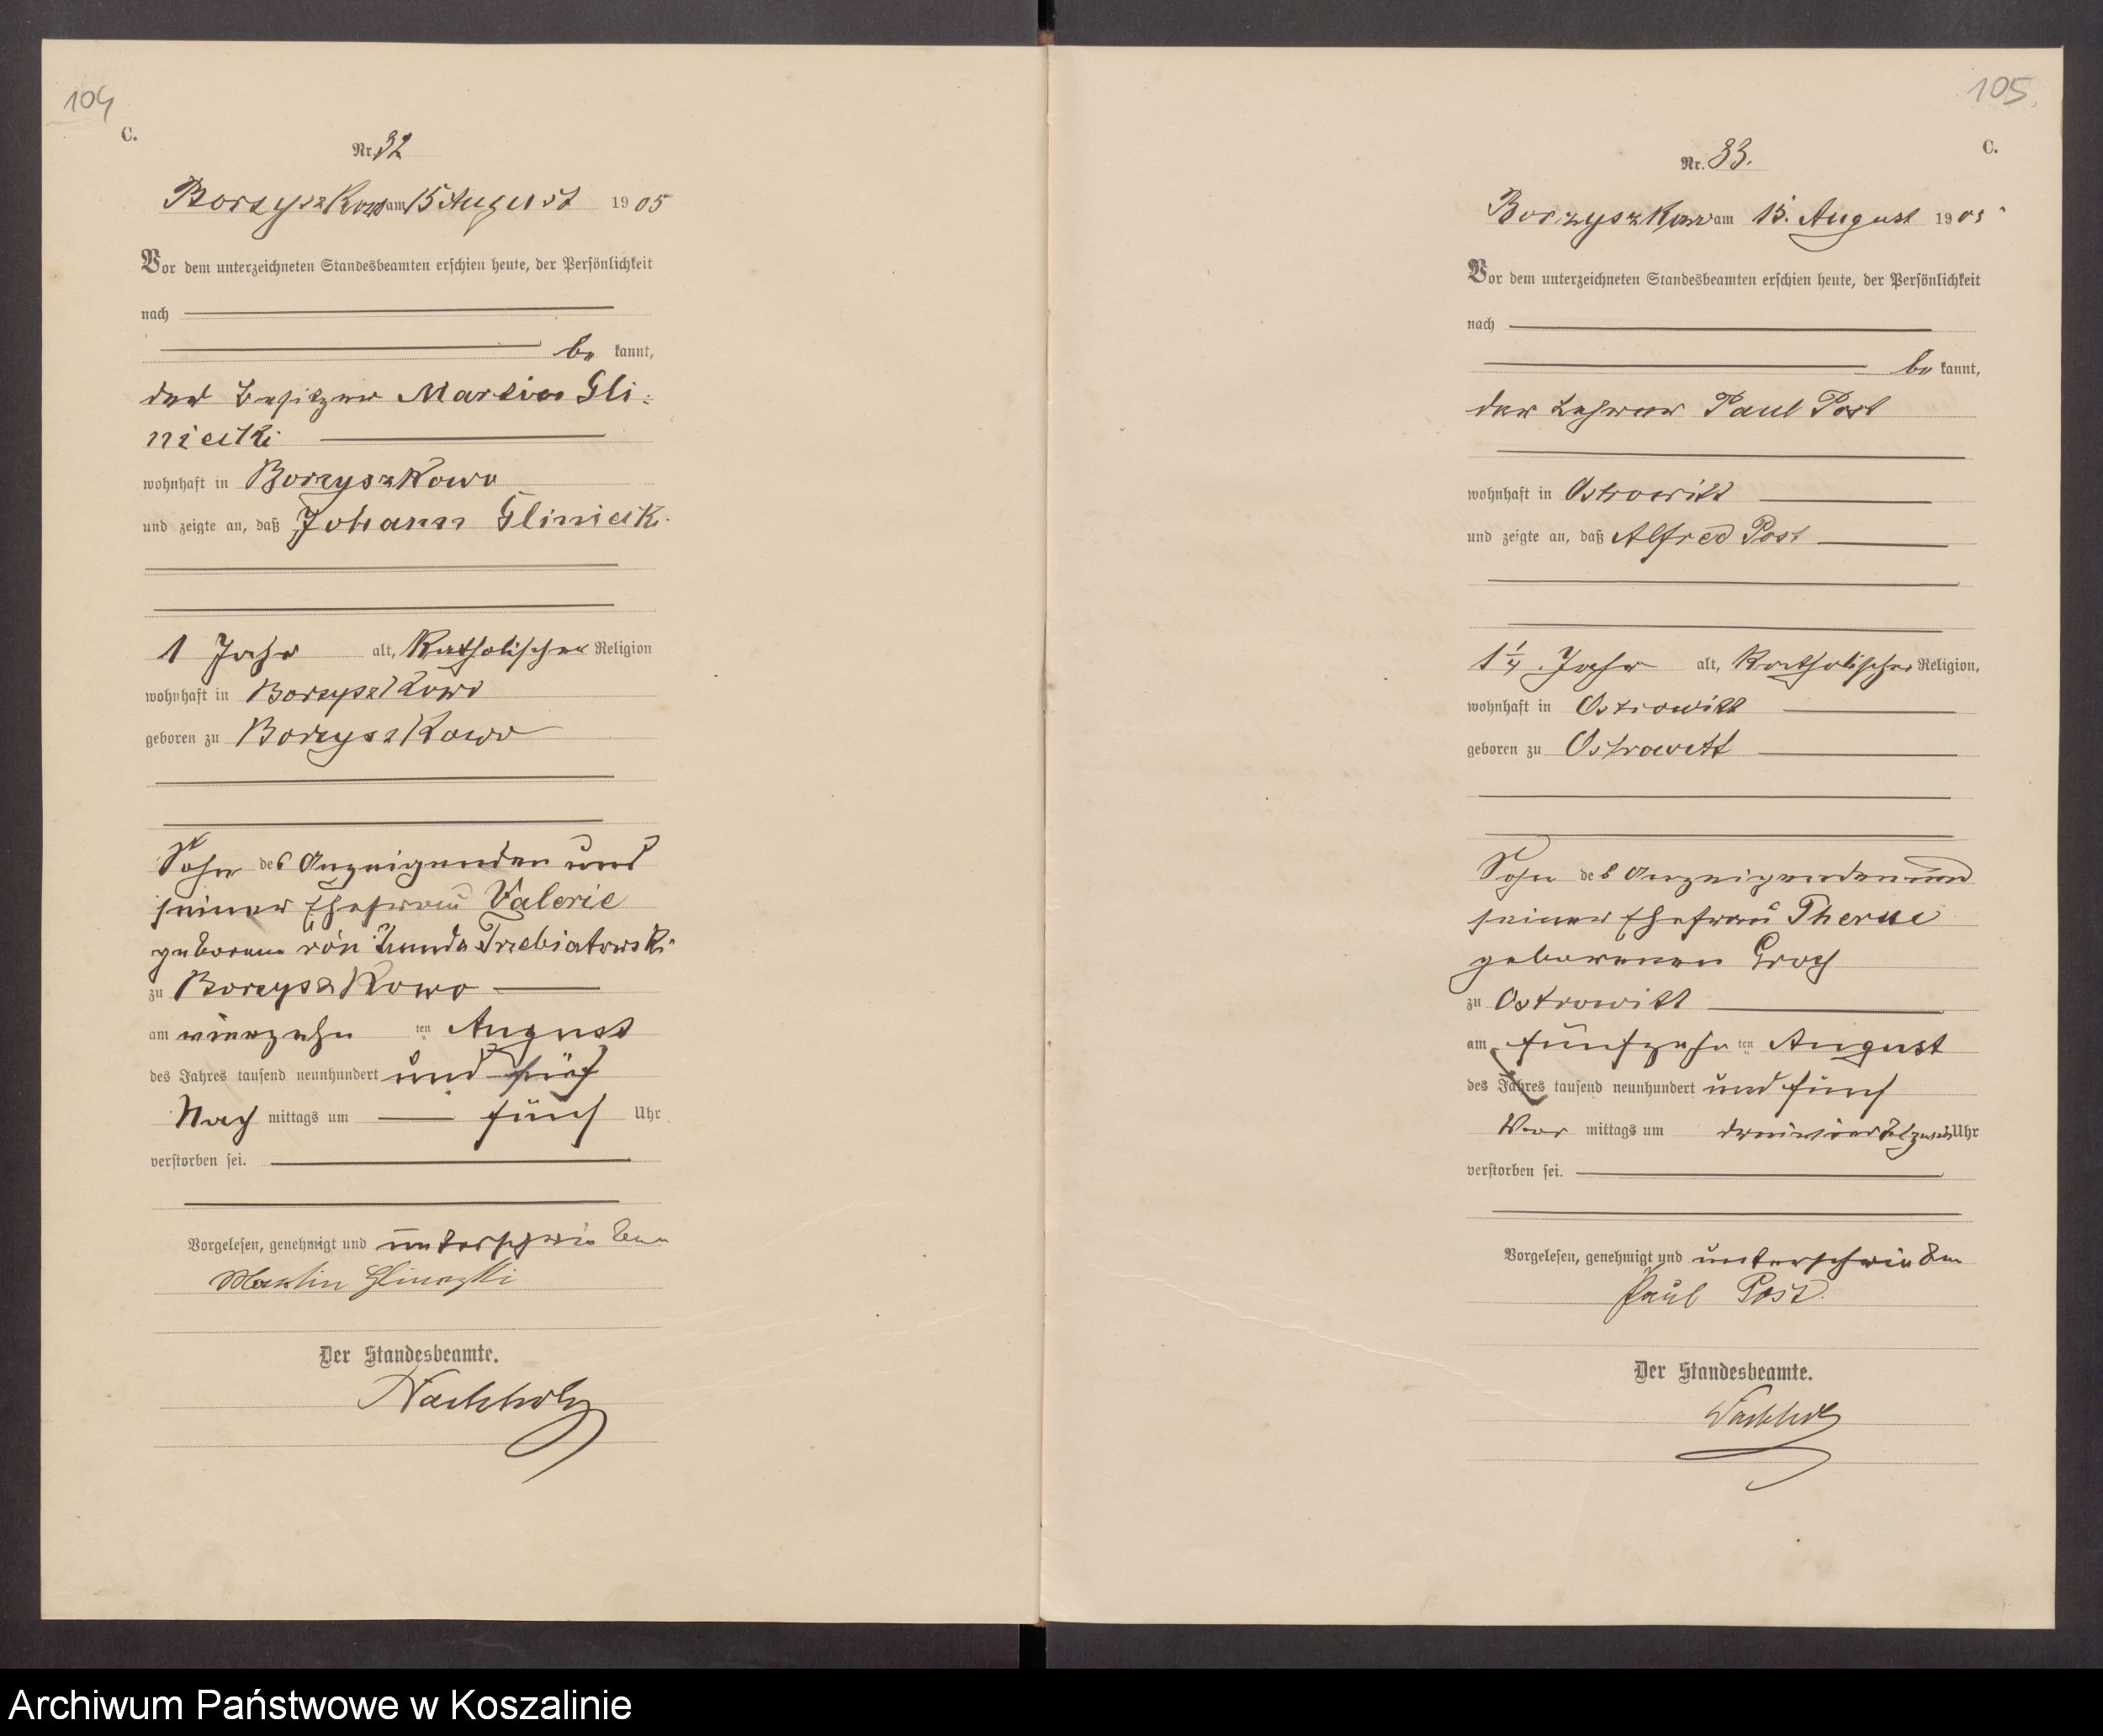 104
C.
Nr. 32
Borzyszkowo am 15 August 1905
Vor dem unterzeichneten Standesbeamten erschien heute, der Persönlichkeit
nach
be kannt,
der Besitzer Martin Gli-
niecki
wohnhaft in Borzyszkowo
und zeigte an, daß Johann Gliniecki
1 Jahr alt, katholischer Religion
wohnhaft in Borzyszkowo
geboren zu Borzyszkowo
Sohn des Anzeigenden und
seiner Ehefrau Valerie
geborene von Trzebiatowski
zu Borzyszkowo
am vierzehn ten August
des Jahres tausend neunhundert und fünf
Nach mittags um fünf Uhr
verstorben sei.
Vorgelesen, genehmigt und unterschrieben
Martin
Der Standesbeamte.
105.
C.
Nr. 33.
Borzyszkowo am 15. August 1905
Vor dem unterzeichneten Standesbeamten erschien heute, der Persönlichkeit
nach
be kannt,
der Lehrer Paul Post
wohnhaft in Ostrowitt
und zeigte an, daß Alfred Post
1 1/4 Jahr alt, katholischer Religion,
wohnhaft in Ostrowitt
geboren zu Ostrowitt
Sohn des Anzeigenden und
seiner Ehefrau Therese
geborenen
zu Ostrowitt
am fünfzehn ten August
des Jahres tausend neunhundert und fünf
Vor mittags um dreiviertelzwei Uhr
verstorben sei.
Vorgelesen, genehmigt und unterschrieben
Paul Post.
Der Standesbeamte.
Archiwum Państwowe w Koszalinie